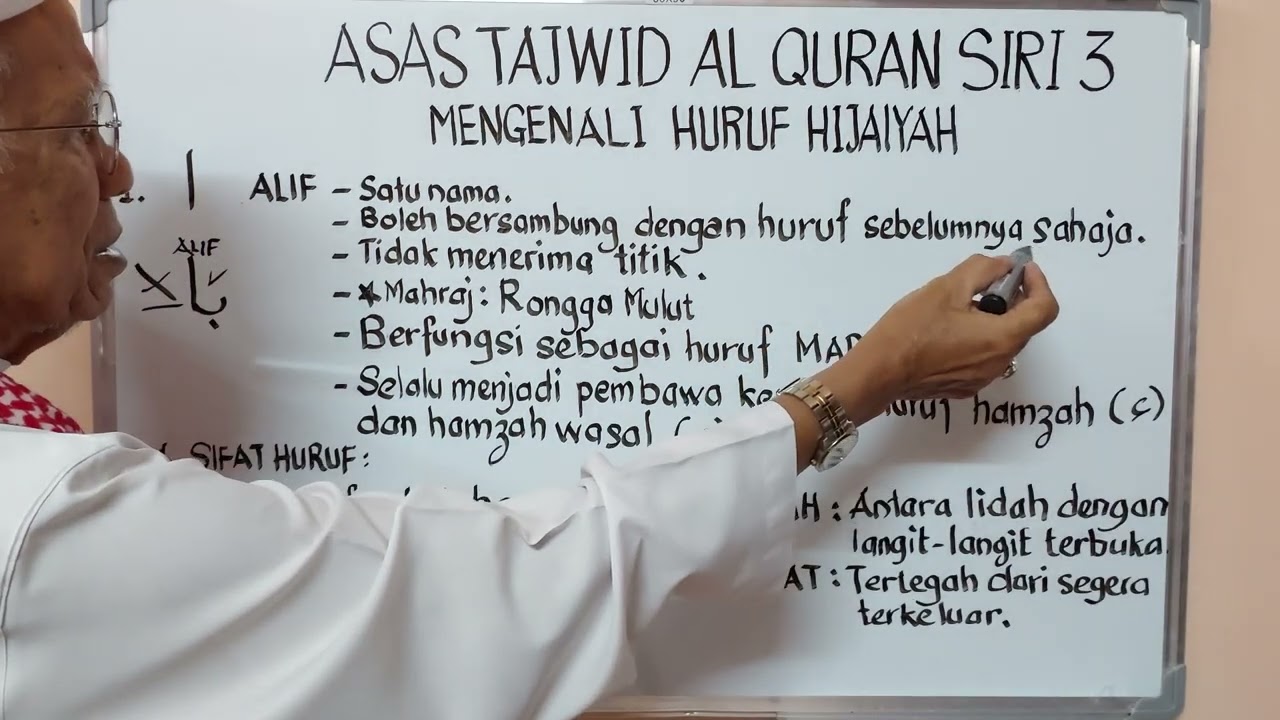 ASAS TAJWID AL QURAN SIRI 3
MENGENALI HURUF HIJAIYAH
1. ا ALIF - Satu nama.
- Boleh bersambung dengan huruf sebelumnya sahaja.
- Tidak menerima titik.
- *Mahraj: Rongga Mulut
- Berfungsi sebagai huruf
- Selalu menjadi pembawa hamzah (ء)
dan hamzah wasal
ALIF
با
SIFAT HURUF:
: Antara lidah dengan
langit-langit terbuka
: Tertegah dari segera
terkeluar.